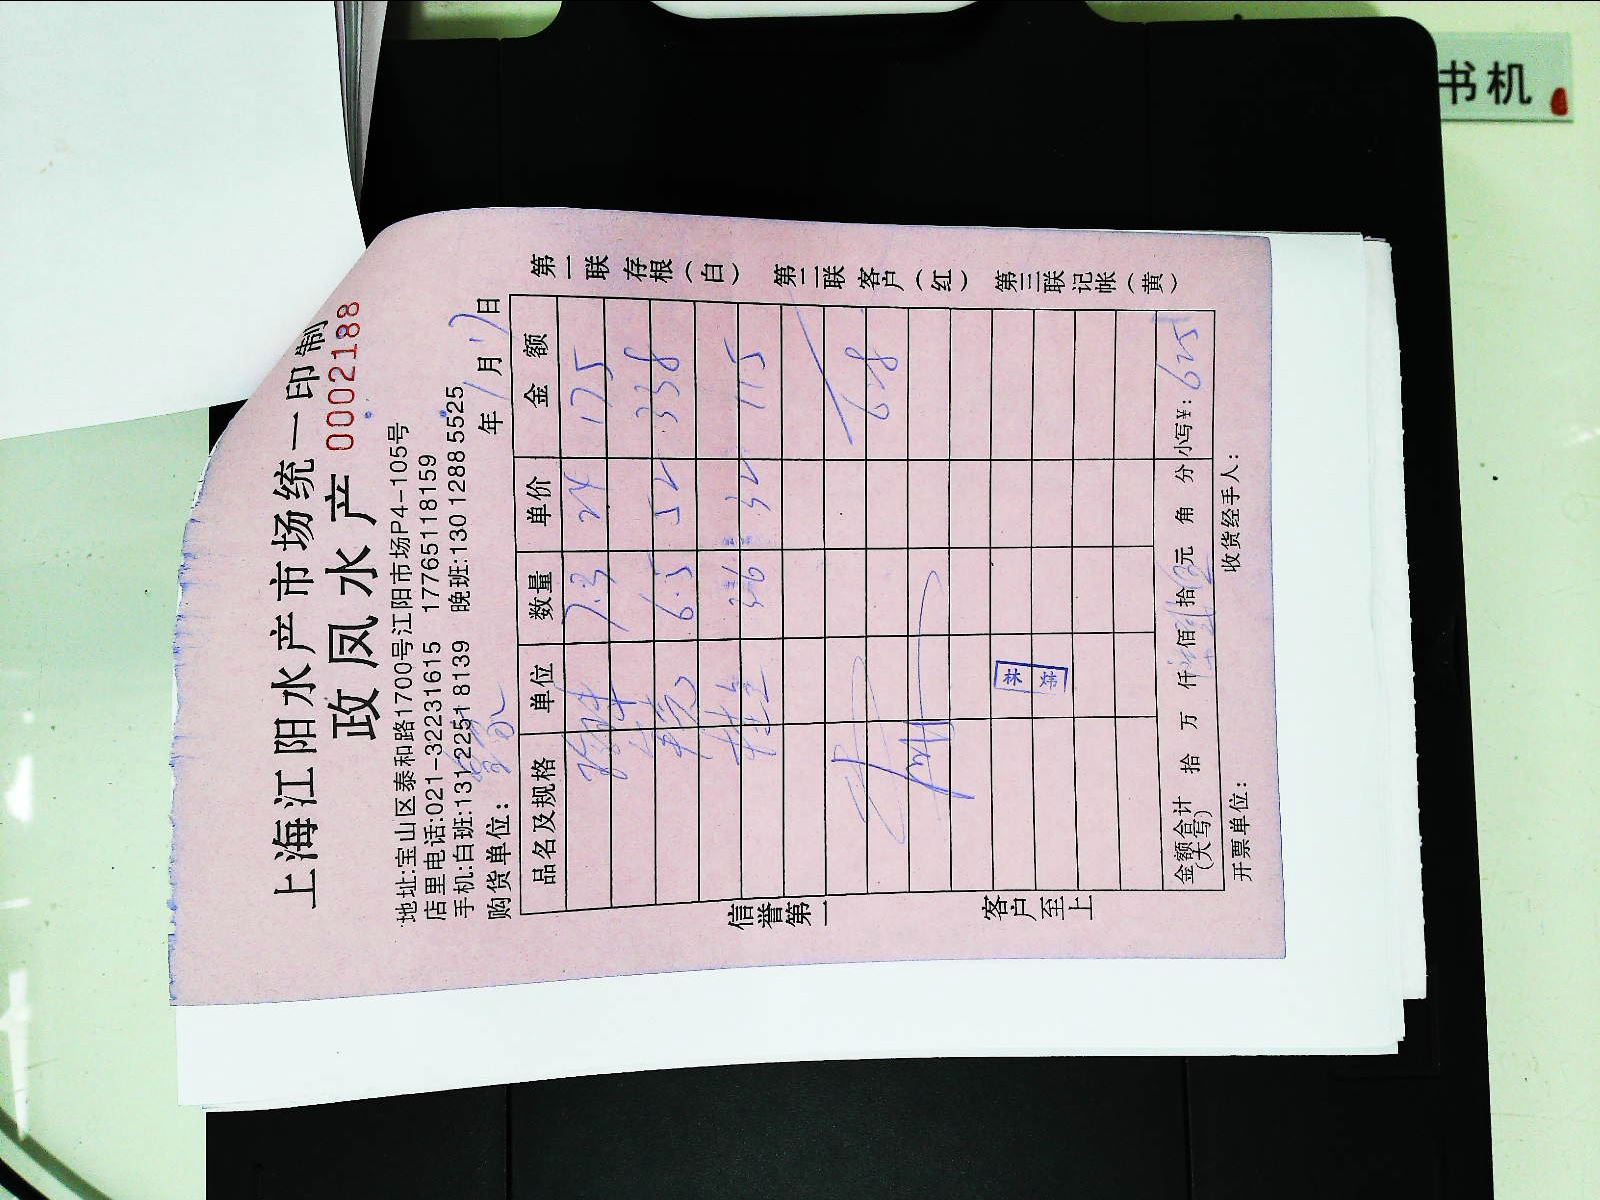 书机
上海江阳水产市场统一印制
政凤水产 0002188
地址:宝山区泰和路1700号江阳市场P4-105号
店里电话:021-32231615 17765118159
手机:白班:131 2251 8139 晚班:130 1288 5525
购货单位: 年 1 月 17 日
品名及规格 单位 数量 单价 金额
7.3 24 175
6.5 52 338
3.6 32 115
628
林炜
金额合计(大写) 拾 万 仟 佰 拾 元 角 分 小写¥: 625
开票单位: 收货经手人:
第一联 存根(白) 第二联 客户(红) 第三联 记帐(黄)
信誉第一 客户至上